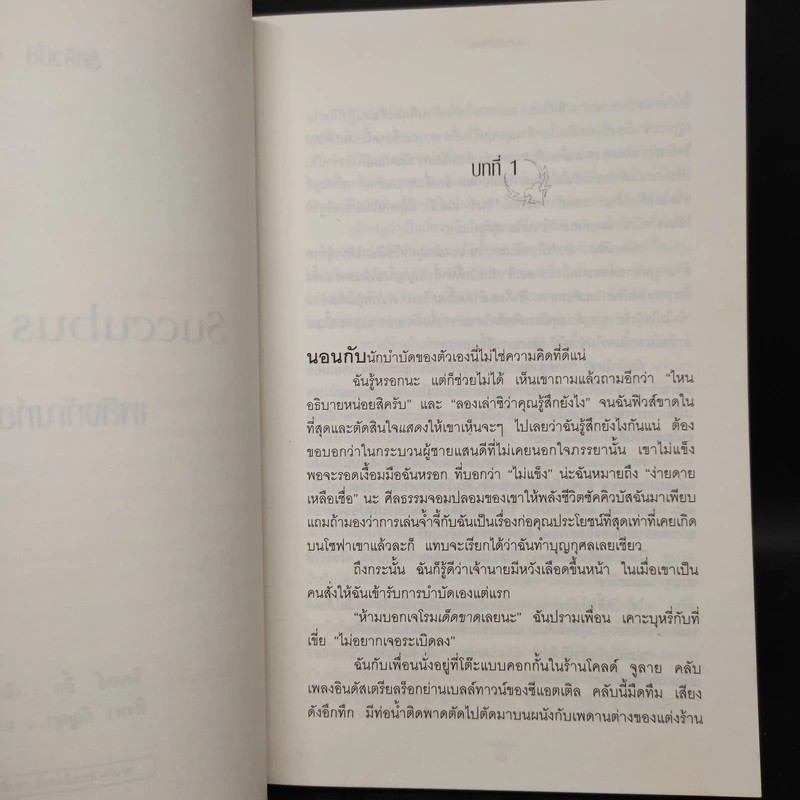 บทที่ 1
นอนกับนักบำบัดของตัวเองนี่ไม่ใช่ความคิดที่ดีแน่
ฉันรู้หรอกนะ แต่ก็ช่วยไม่ได้ เห็นเขาถามแล้วถามอีกว่า “ไหน
อธิบายหน่อยสิครับ” และ “ลองเล่าซิว่าคุณรู้สึกยังไง” จนฉันฟิวส์ขาดใน
ที่สุดและตัดสินใจแสดงให้เขาเห็นจะๆ ไปเลยว่าฉันรู้สึกยังไงกันแน่ ต้อง
ขอบอกว่าในกระบวนผู้ชายแสนดีที่ไม่เคยนอกใจภรรยานั้น เขาไม่แข็ง
พอจะรอดเงื้อมมือฉันหรอก ที่บอกว่า “ไม่แข็ง” น่ะฉันหมายถึง “ง่ายดาย
เหลือเชื่อ” นะ ศีลธรรมจอมปลอมของเขาให้พลังชีวิตซัคคิวบัสฉันมาเพียบ
แถมถ้ามองว่าการเล่นจ้ำจี้กับฉันเป็นเรื่องก่อคุณประโยชน์ที่สุดเท่าที่เคยเกิด
บนโซฟาเขาแล้วละก็ แทบจะเรียกได้ว่าฉันทำบุญกุศลเลยเชียว
ถึงกระนั้น ฉันก็รู้ดีว่าเจ้านายมีหวังเลือดขึ้นหน้า ในเมื่อเขาเป็น
คนสั่งให้ฉันเข้ารับการบำบัดเองแต่แรก
“ห้ามบอกเจโรมเด็ดขาดเลยนะ” ฉันปรามเพื่อน เคาะบุหรี่กับที่
เขี่ย “ไม่อยากเจอระเบิดลง”
ฉันกับเพื่อนนั่งอยู่ที่โต๊ะแบบคอกกั้นในร้านโคลด์ จูลาย คลับ
เพลงอินดัสเตรียลร็อกย่านเบลล์ทาวน์ของซีแอตเติล คลับนี้มืดทึม เสียง
ดังอึกทึก มีท่อน้ำติดพาดตัดไปตัดมาบนผนังกับเพดานต่างของแต่งร้าน